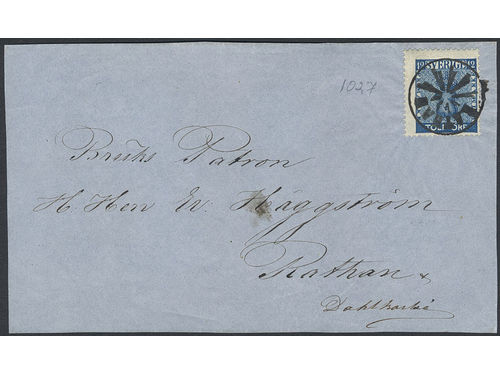 12 SVERIGE 12
TOLF ÖRE
1027
Bruks Patron
H. Herr W. Häggström
Rathan